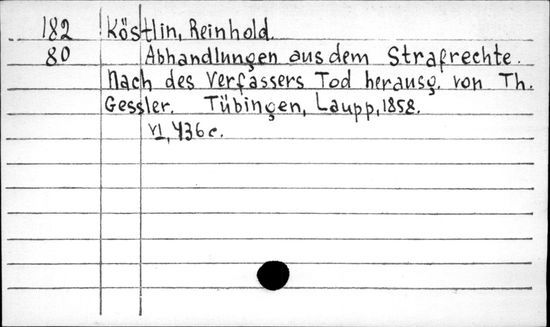 182 Köstlin, Reinhold.
80 Abhandlungen aus dem Strafrechte.
Nach des Verfassers Tod herausg. von Th.
Gessler. Tübingen, Laupp, 1858.
VI, 436 c.